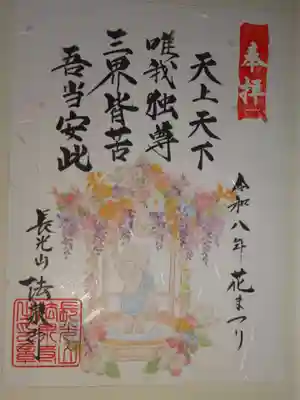 奉拝
天上天下
唯我独尊
三界皆苦
吾当安此
令和八年 花まつり
長光山